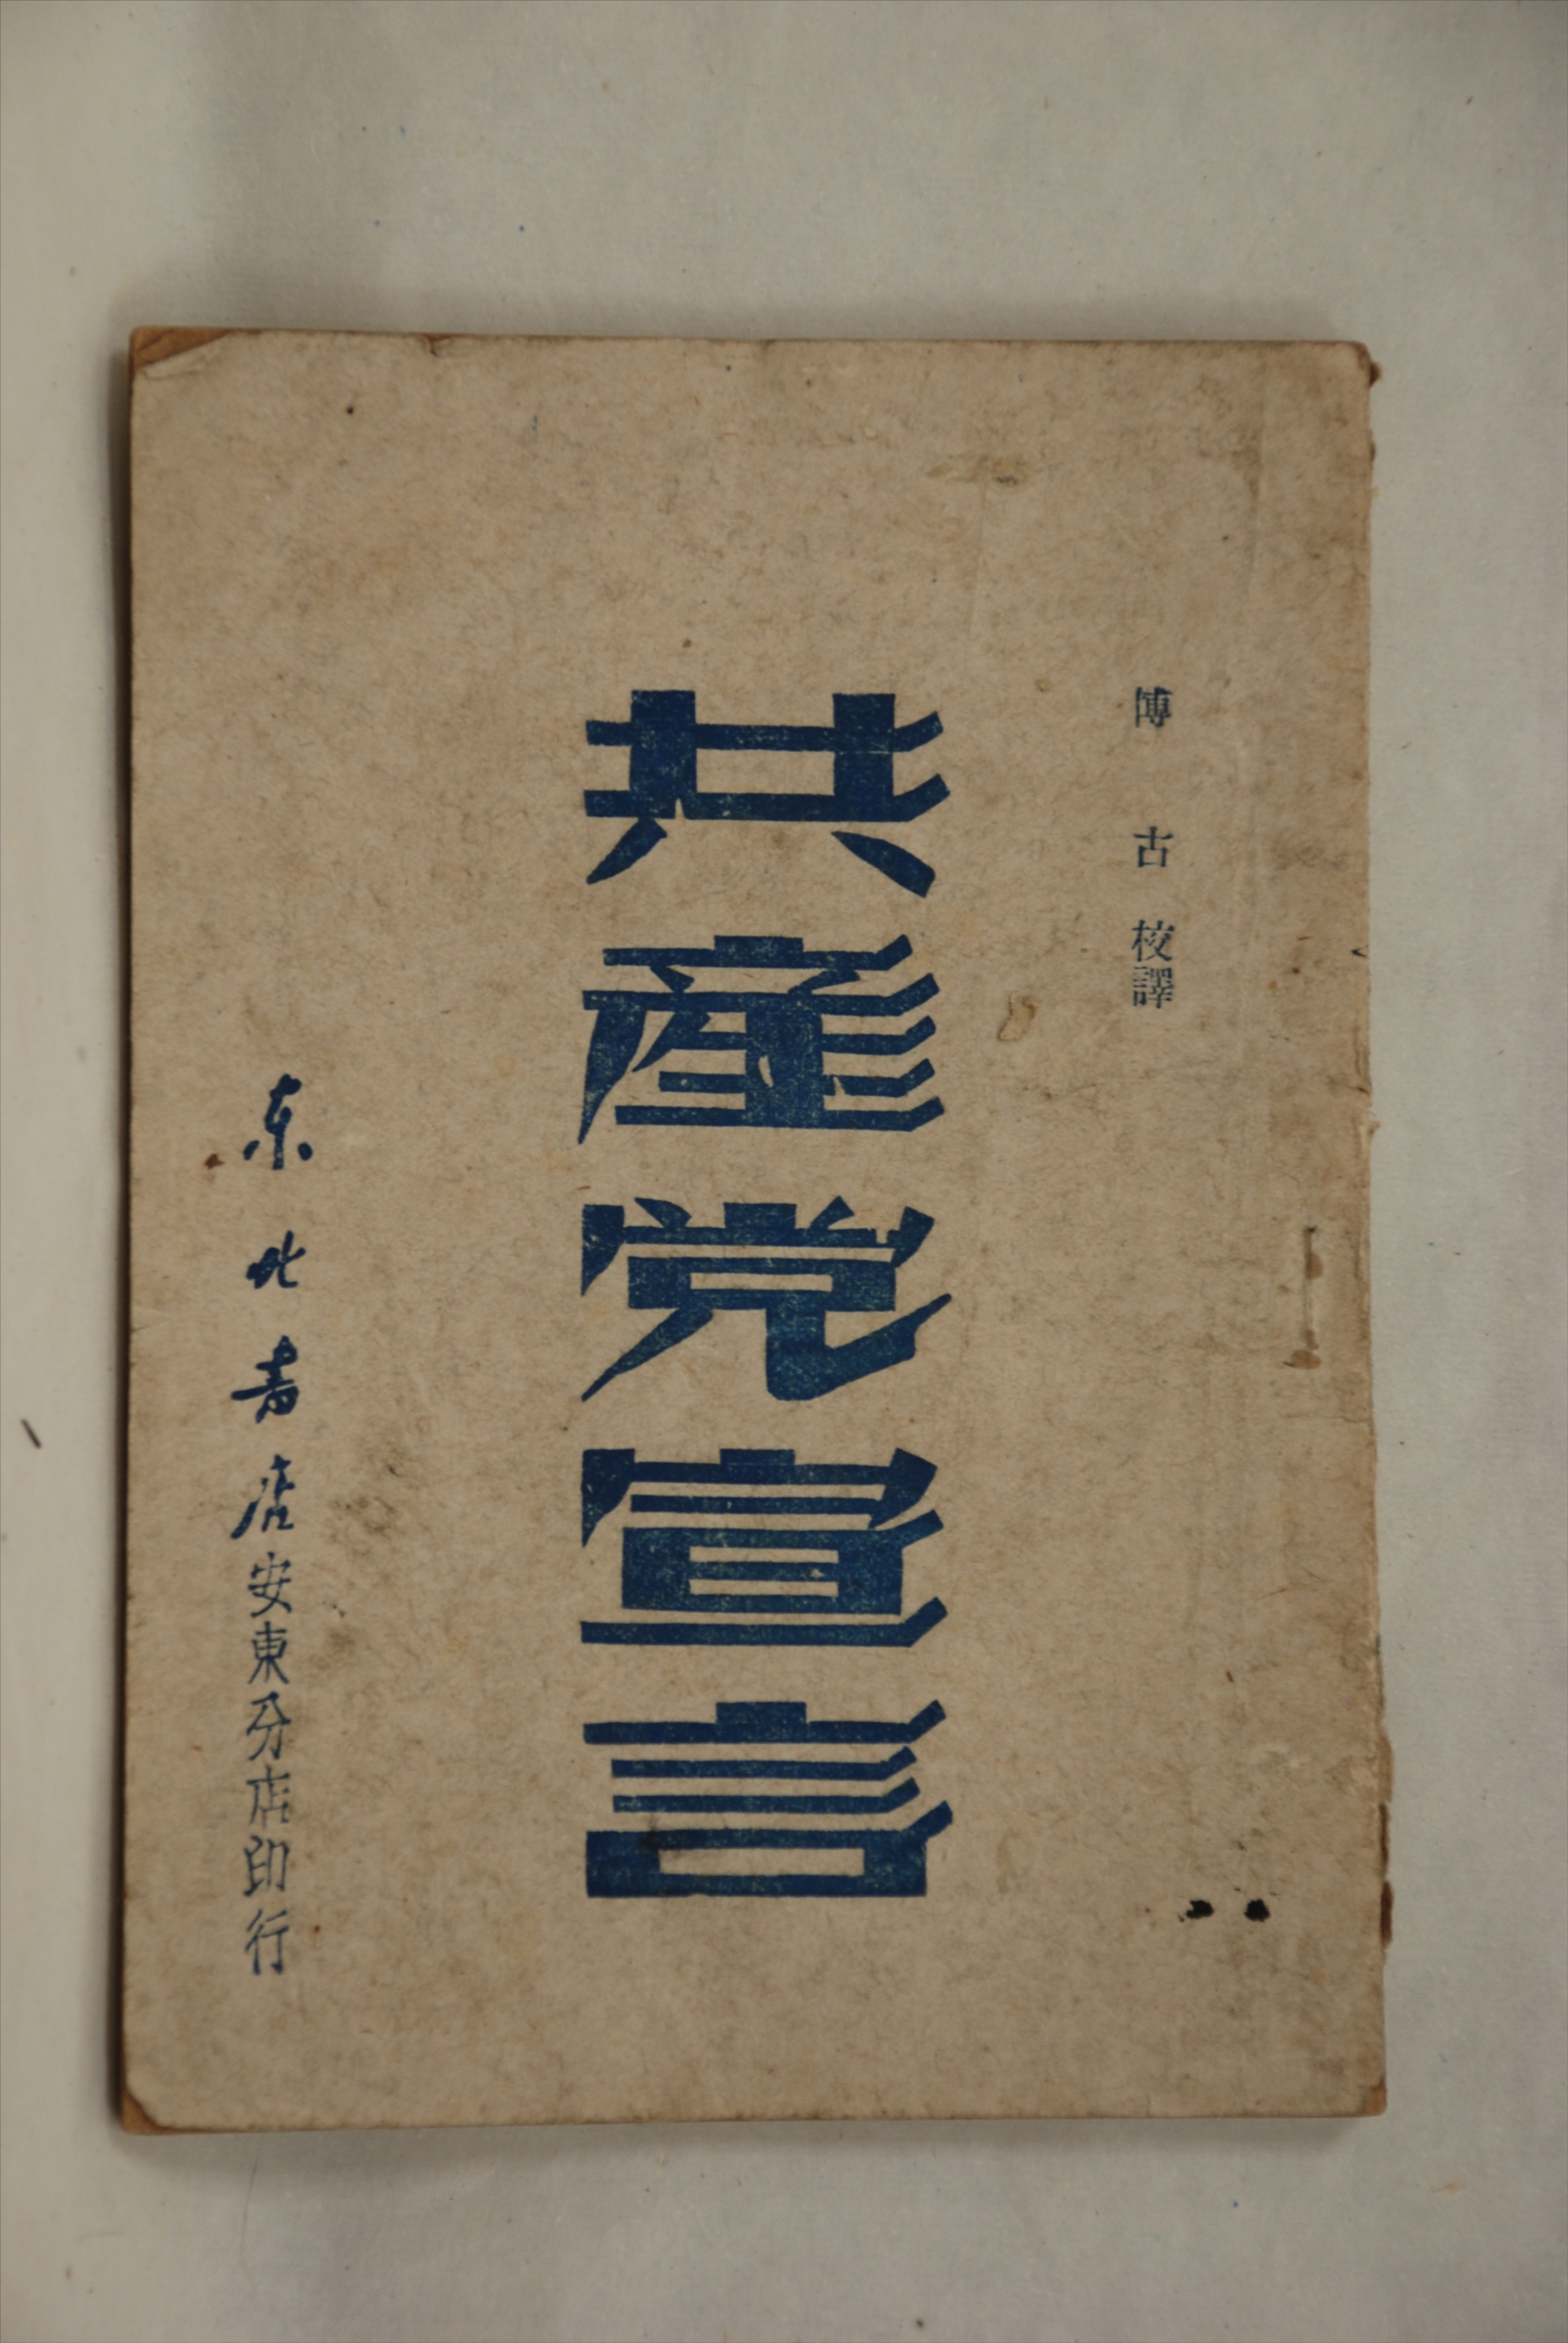 博古校譯
共産党宣言
东北书店安東分店印行